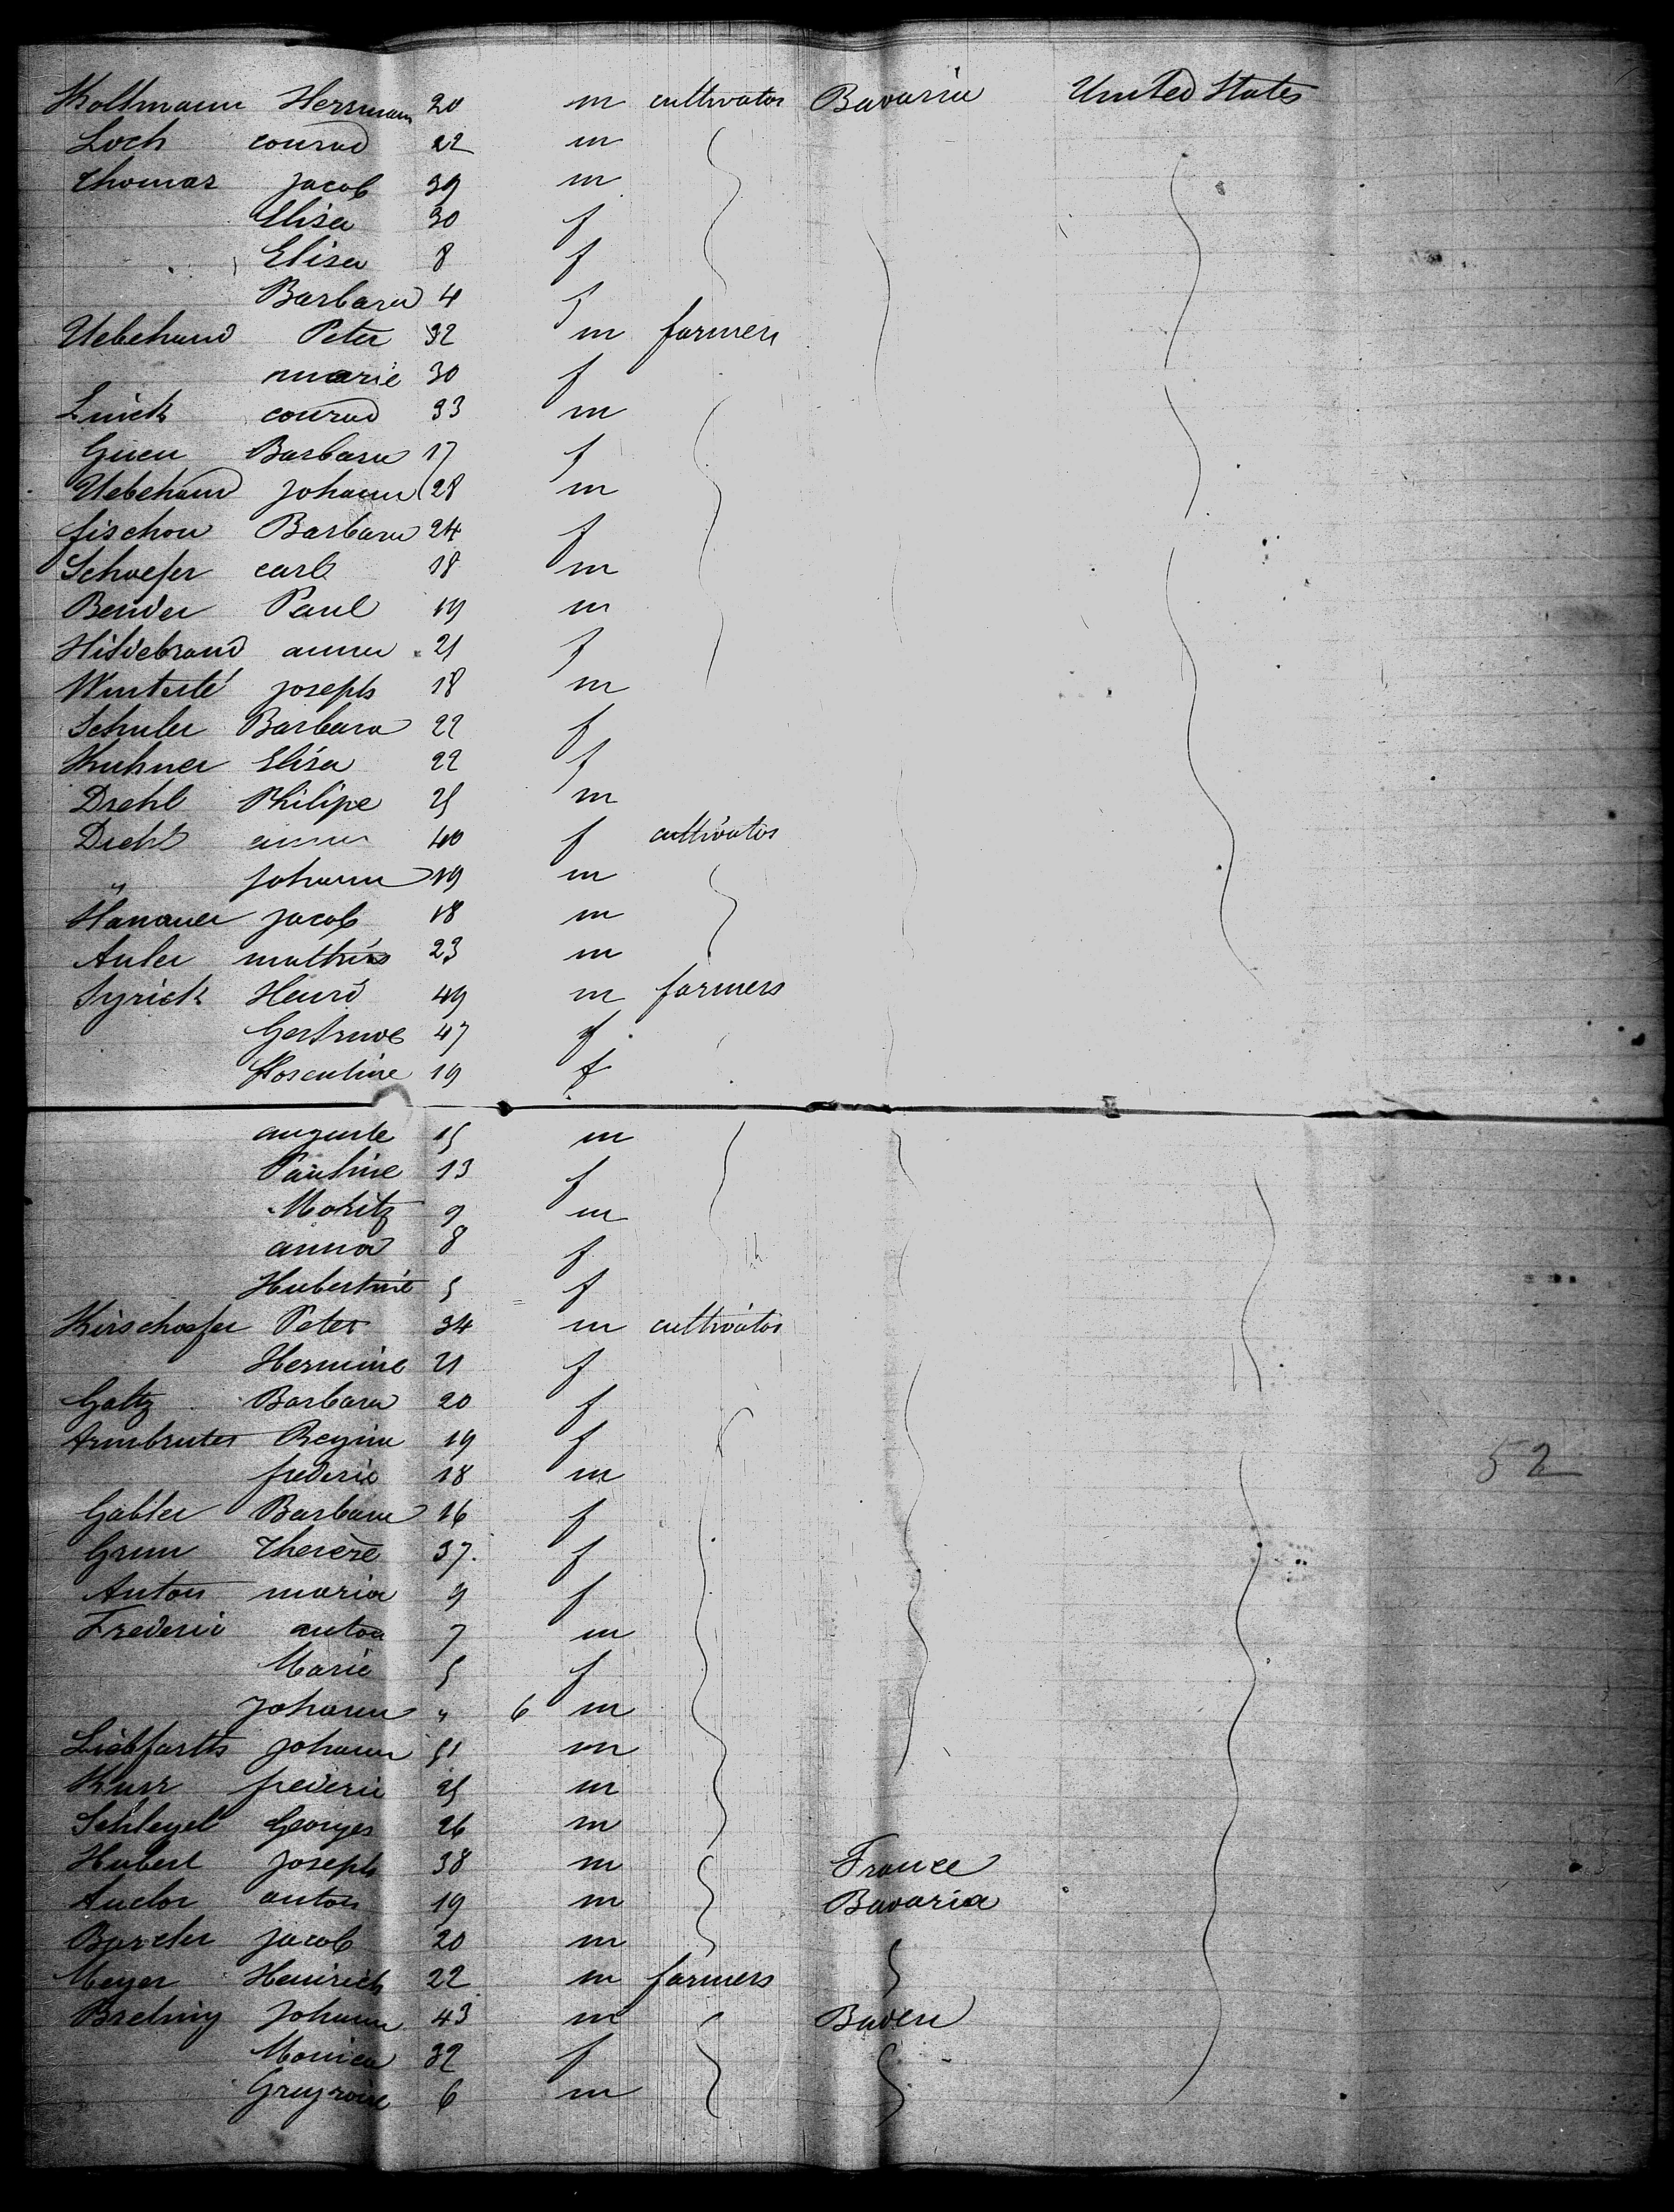 Koltmann Herrmann 20 m cultivator Bavaria United States
Loch conrad 22 m
Thomas Jacob 39 m
Elisa 30 f
Elisa 8 f
Barbara 4 f
Uebehand Peter 32 m farmers
marie 30 f
Linck conrad 33 m
Barbara 17 f
Uebehand Johann 28 m
fischou Barbara 24 f
Schaefer carl 18 m
Bender Paul 19 m
Hildebrand anna 21 f
Winterlé joseph 18 m
Schuler Barbara 22 f
Kuhner Elisa 22 f
Diehl Philipe 25 m
Diehl anna 40 f cultivator
" Johann 19 m
Hanauer jacob 18 m
Auler mathias 23 m
Syrick Henri 49 m farmers
Gertrude 47 f
19 f
auguste 15 m
Pauline 13 f
Moritz 9 m
anna 8 f
Hubertine 5 f
Kirschoefer Peter 34 m cultivator
Hermine 21 f
Galtz Barbara 20 f
Armbruter Regina 19 f
frederic 18 m
Gabler Barbara 16 f
Grun Therèse 37 f
Anton maria 9 f
Frederic anton 7 m
Marie 5 f
Johann " 6 m
Liebfarth Johann 51 m
Kurr frederic 25 m
Schlegel Georges 26 m
Hubert Joseph 38 m France
anton 19 m Bavaria
jacob 20 m
Meyer Heinrich 22 m farmers
Johann 43 m Baden
Monica 32 f
Gregroire 6 m
52